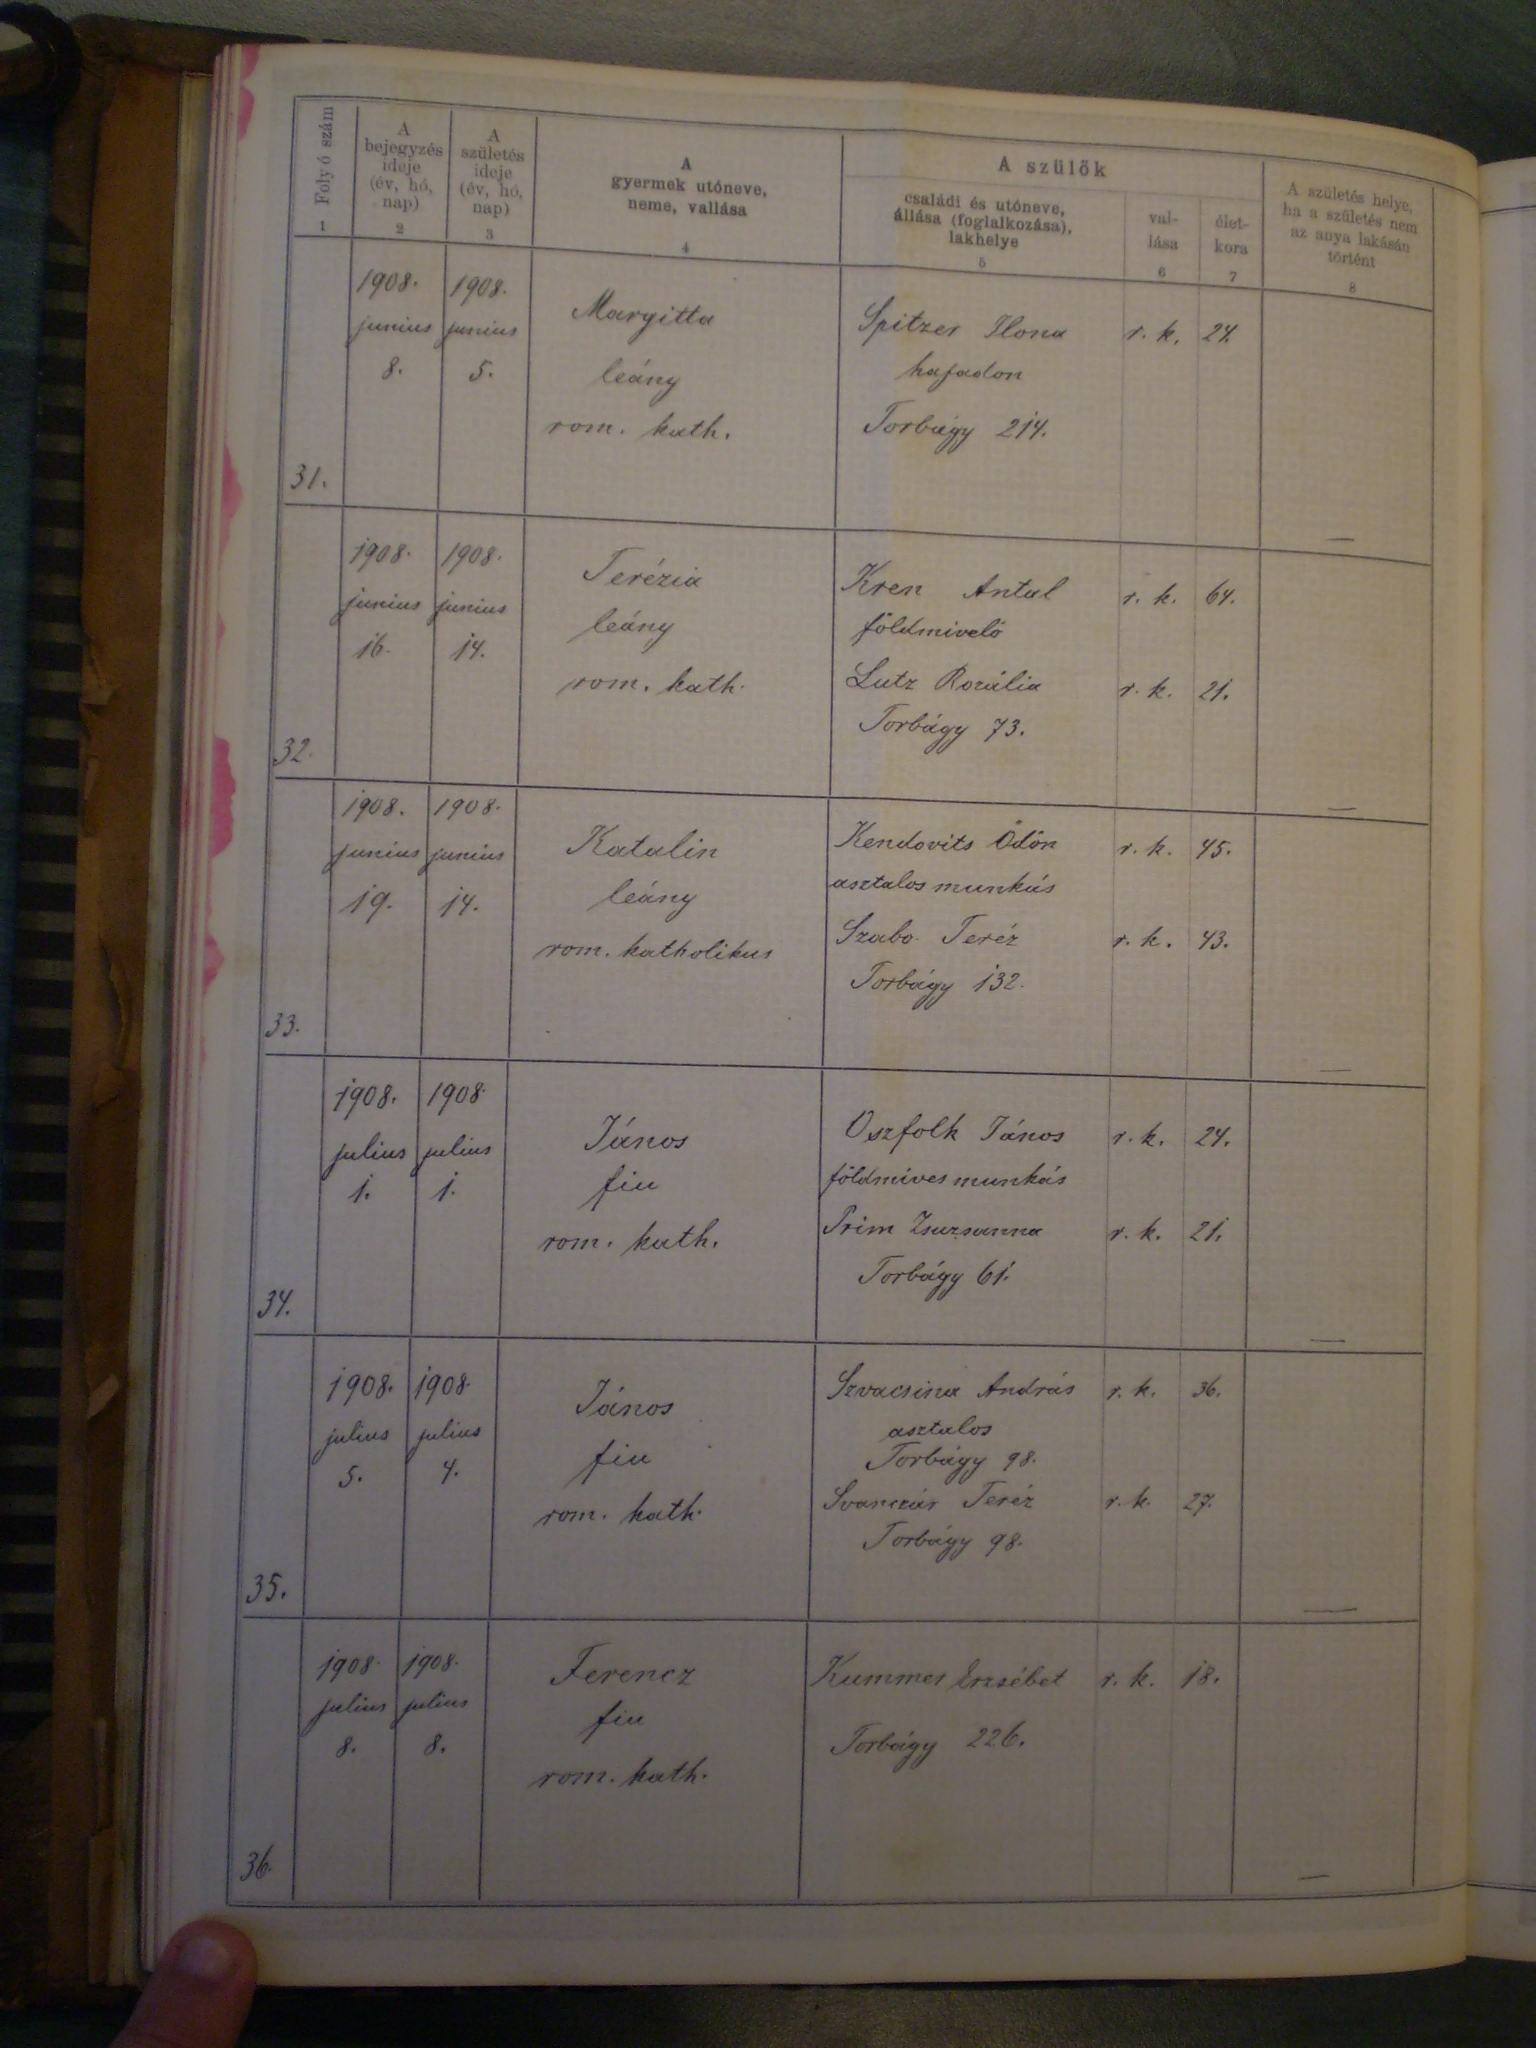 Folyó szám
A bejegyzés ideje (év, hó, nap)
A születés ideje (év, hó, nap)
A gyermek utóneve, neme, vallása
A szülők
családi és utóneve, állása (foglalkozása), lakhelye
val-lása
élet-kora
A születés helye, ha a születés nem az anya lakásán történt
1 2 3 4 5 6 7 8
1908. 1908.
junius junius Margitta Spitzer Ilona r. k. 24.
8. 5. leány hajadon
rom. kath. Torbágy 214.
31. —
1908. 1908. Terézia Kren Antal r. k. 64.
junius junius leány földmivelő
16. 14. rom. kath. Lutz Rozália r. k. 21.
Torbágy 73.
32. —
1908. 1908. Kendovits Ödön r. k. 45.
junius junius Katalin asztalos munkás
19. 14. leány Szabo Teréz r. k. 43.
rom. katholikus Torbágy 132.
33. —
1908. 1908. János Oszfolk János r. k. 24.
julius julius fiu földmives munkás
1. 1. rom. kath. Prim Zsuzsanna r. k. 21.
Torbágy 61.
34. —
1908. 1908. János Szvacsina András r. k. 36.
julius julius fiu asztalos
5. 4. Torbágy 98.
rom. kath. Teréz r. k. 27.
Torbágy 98.
35. —
1908. 1908. Ferencz Kummer Erzsébet r. k. 18.
julius julius fiu
8. 8. rom. kath. Torbágy 226.
36. —